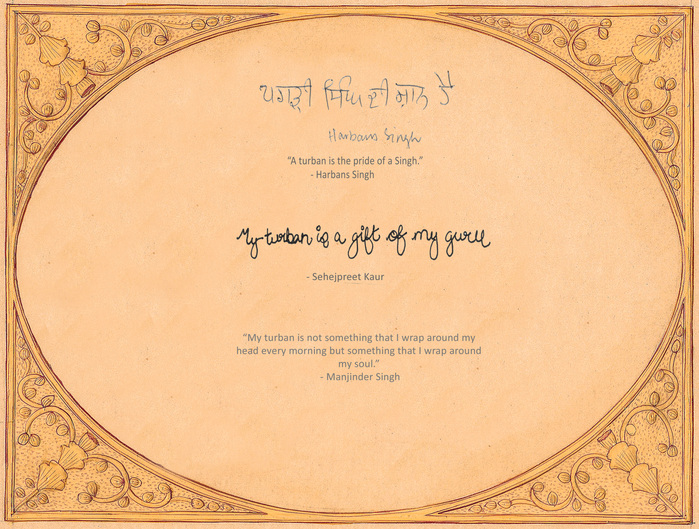 ਪਗੜੀ ਸਿੰਘ ਦੀ ਸ਼ਾਨ ਹੈ
Harbans Singh
“A turban is the pride of a Singh.”
- Harbans Singh
My turban is a gift of my guru
- Sehejpreet Kaur
“My turban is not something that I wrap around my
head every morning but something that I wrap around
my soul.”
- Manjinder Singh